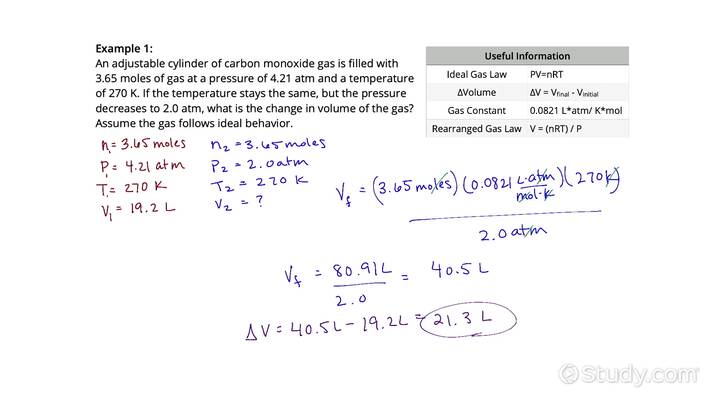 Example 1:
An adjustable cylinder of carbon monoxide gas is filled with
3.65 moles of gas at a pressure of 4.21 atm and a temperature
of 270 K. If the temperature stays the same, but the pressure
decreases to 2.0 atm, what is the change in volume of the gas?
Assume the gas follows ideal behavior.
Useful Information
Ideal Gas Law PV=nRT
ΔVolume ΔV = Vfinal - Vinitial
Gas Constant 0.0821 L*atm/ K*mol
Rearranged Gas Law V = (nRT) / P
n₁= 3.65 moles
P₁= 4.21 atm
T₁= 270 K
V₁= 19.2 L
n₂ = 3.65 moles
P₂ = 2.0 atm
T₂ = 270 K
V₂ = ?
Vf = (3.65 moles)(0.0821 L·atm/mol·K)(270K)
2.0 atm
Vf = 80.91L = 40.5 L
2.0
ΔV = 40.5L - 19.2L = 21.3 L
Study.com